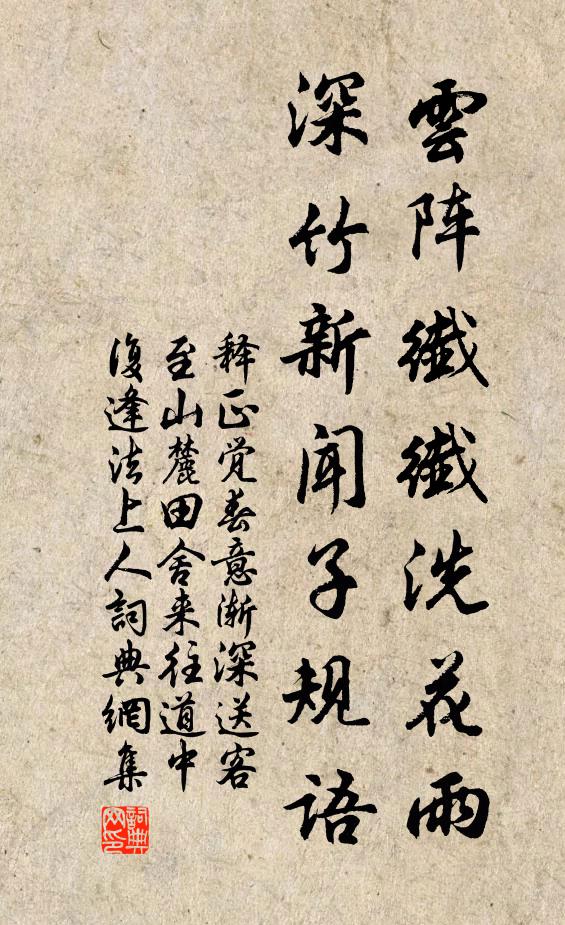 雲阵纖纖洗花雨
深竹新闻子规语
释正觉春意渐深送客
至山麓田舍来往道中
復逢法上人詞典網集
詞典
网印